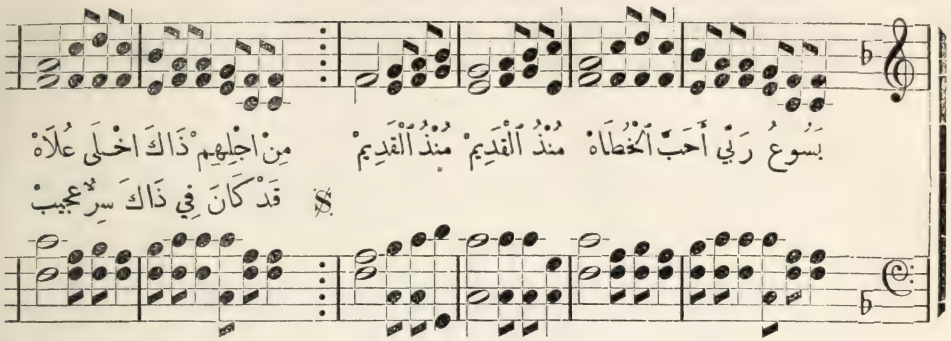 يَسُوعُ رَبِّي أَحَبَّ ٱلْخُطَاهْ مُنْذُ ٱلْقَدِيمْ مُنْذُ ٱلْقَدِيمْ مِنْ اجْلِهِمْ ذَاكَ اخْلَى عُلَاهْ
قَدْ كَانَ فِي ذَاكَ سِرٌّ عَجِيبْ